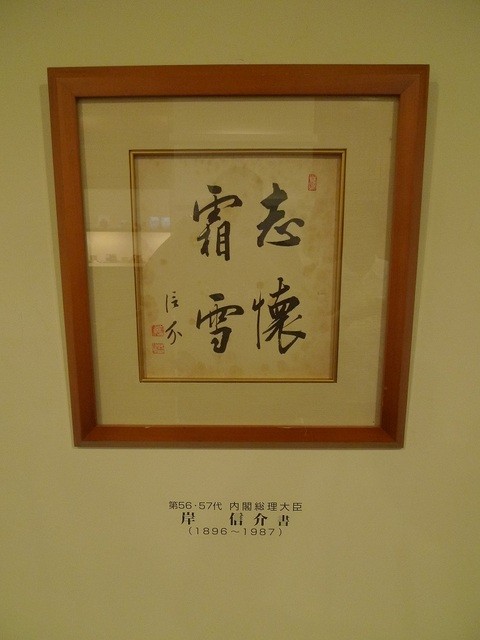 志懐
霜雪
信介
第56・57代 内閣総理大臣
岸 信介 書
(1896～1987)